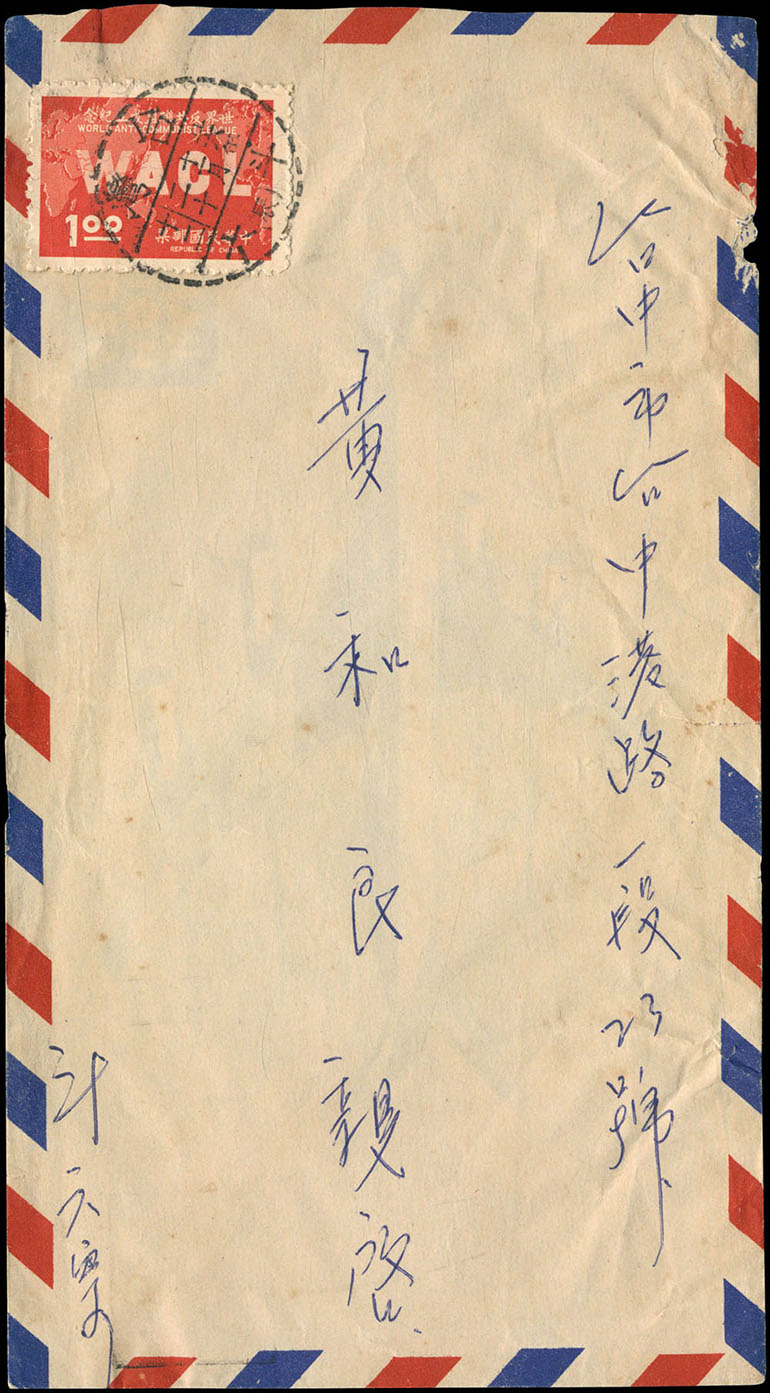 世界反共
紀念
WORLD ANTI COMMUNIST LEAGUE
WACL
1.00
中華民國郵票
REPUBLIC OF CHINA
台中市台中港路一段23號
黃和良親啟
斗六寄